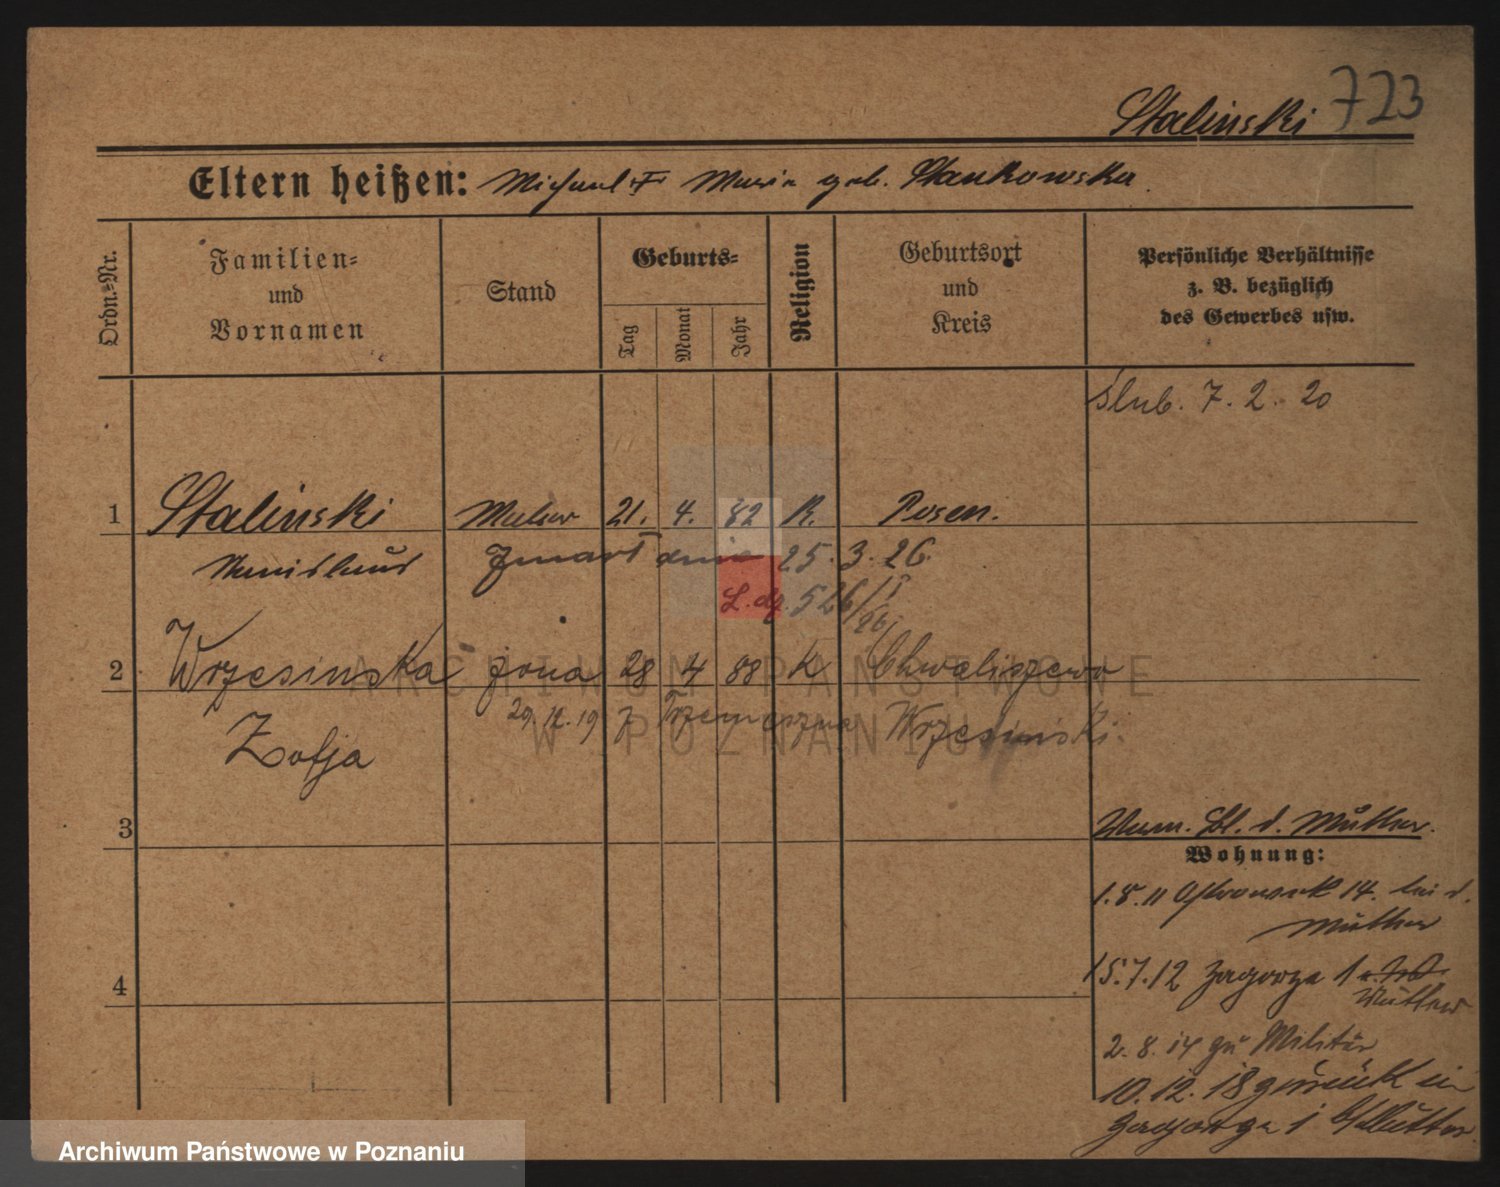 Stalinski 723
Eltern heißen: Michael u. Maria geb. Stankowska
Ordn.-Nr.
Familien-
und
Vornamen
Stand
Geburts-
Tag
Monat
Jahr
Religion
Geburtsort
und
Kreis
Persönliche Verhältnisse
z. B. bezüglich
des Gewerbes usw.
Ślub. 7. 2. 20
1 Stalinski Maler 21. 4. 82 K. Posen.
Stanislaus Zmarł dnia 25. 3. 26.
L. dz. 526/II
26/
2 Wrzesinska żona 28 4 88 K Chwaliszewo
29. 12. 19 z Trzemeszna Wrzesinski.
Zofja
3
Verm. Bl. d. Mutter.
Wohnung:
1.8.11 Ostrowek 14. bei d.
Mutter
15.7.12 Zagorze 1
Mutter
2. 8. 14 zu Militär
10. 12. 18 zurück in
Zagorze 1 b/Mutter
4
ARCHIWUM PAŃSTWOWE
W POZNANIU
Archiwum Państwowe w Poznaniu